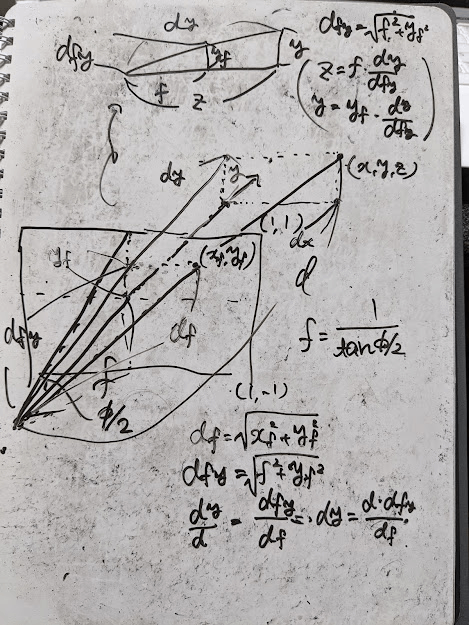 dy
dfy
yf
y
f
z
dfy = √f² + yf²
( z = f · dy/dfy
y = yf · dy/dfy )
dy
y
(x, y, z)
(1, 1)
dx
yf
(xf, yf)
d
dfy
df
f
f = 1/tanϕ/2
ϕ/2
(1, -1)
df = √xf² + yf²
dfy = √f² + yf²
dy/d = dfy/df = · dy = d · dfy/df ·